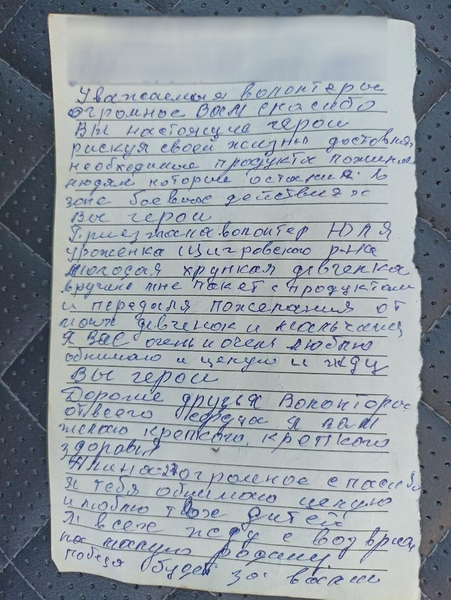 Уважаемыя волонтерос
огромное Вам спасибо
Вы настоящие герои
рискуя своей жизни доставляя
необходимые продукты пожилым
людям которые остались в
зоне боевых действиях
Вы герои
Приезжала волонтер Юля
уроженка Щигровского р-на
молодая хрупкая девченка
вручила мне пакет с продуктами
и передала пожелания от
моих девченок и мальчишек
Я Вас очень и очень люблю
обнимаю и целую и жду
Вы герои
Дорогие друзья Волонторос
от всего сердца я вам
желаю крепкого, крепкого
здоровия
огромное спасибо
Я тебя обнимаю целую
и люблю твоих дитей
Я всех жду с возвращ
на малую родину
победа будет за вами